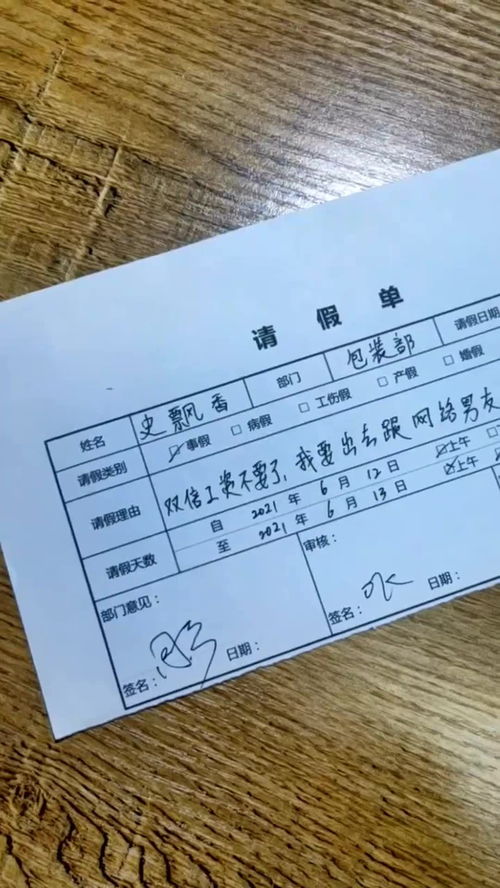 请假单
姓名 史飘香 部门 包装部 请假日期
请假类别 ☑事假 □病假 □工伤假 □产假 □婚假
请假理由 双倍工资不要了,我要出去跟网络男友
请假天数 自 2021 年 6 月 12 日 ☑上午
至 2021 年 6 月 13 日 ☑上午
部门意见: 审核:
签名: 日期: 签名: 日期: